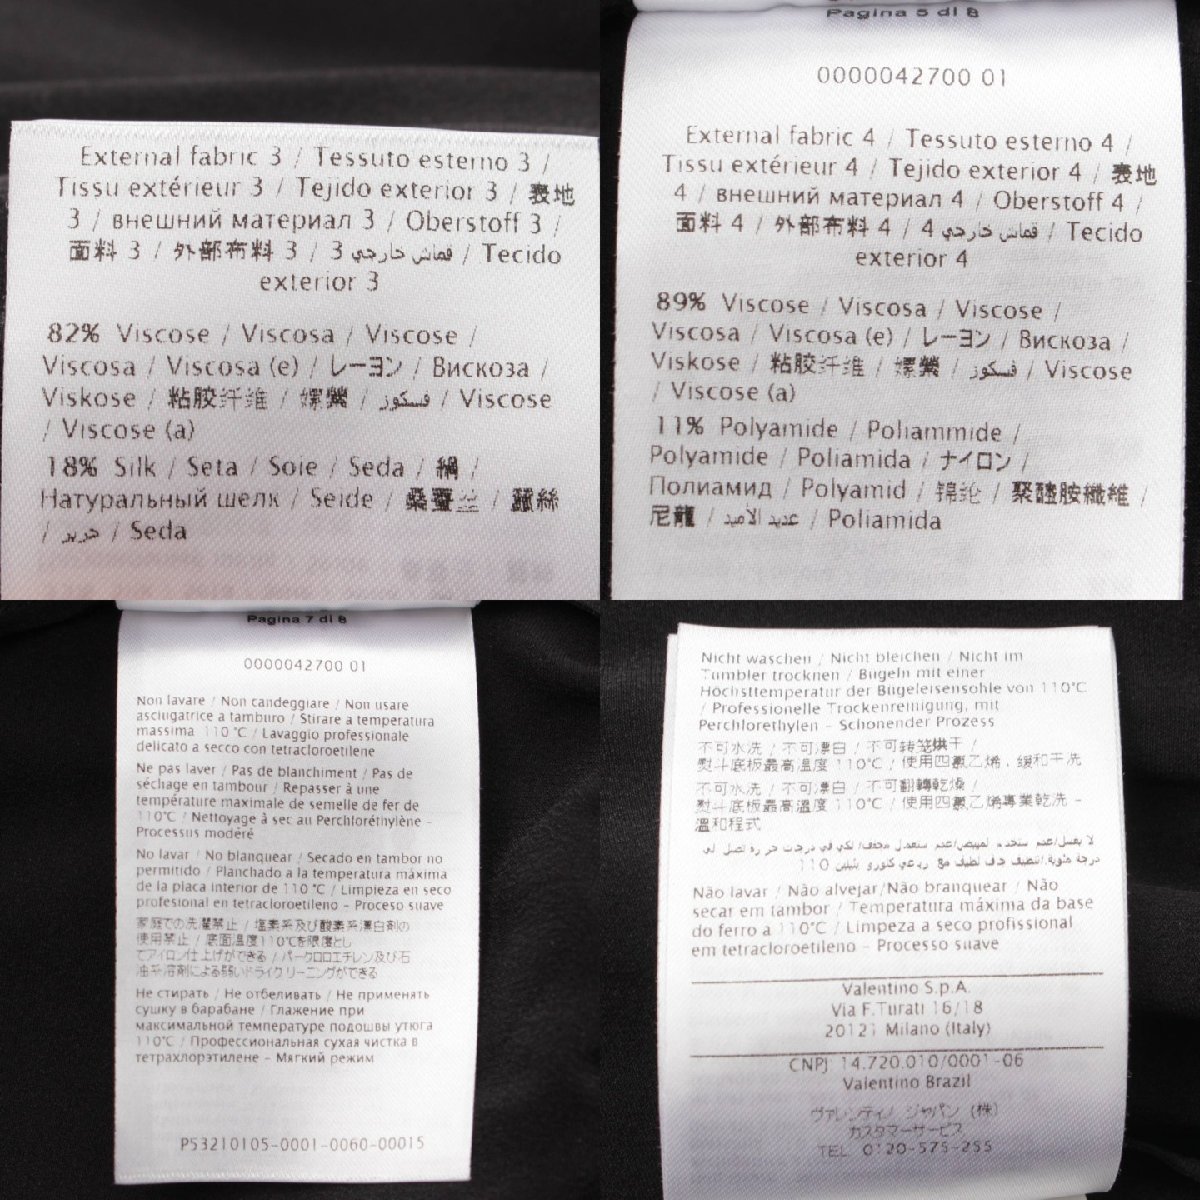 External fabric 3 / Tessuto esterno 3 /
Tissu extérieur 3 / Tejido exterior 3 / 表地
3 / внешний материал 3 / Oberstoff 3 /
面料 3 / 外部布料 3 / قماش خارجي 3 / Tecido
exterior 3
82% Viscose / Viscosa / Viscose /
Viscosa / Viscosa (e) / レーヨン / Вискоза /
Viskose / 粘胶纤维 / 嫘縈 / فسكوز / Viscose
/ Viscose (a)
18% Silk / Seta / Soie / Seda / 絹 /
Натуральный шелк / Seide / 桑蠶丝 / 蠶絲
/ حرير / Seda
Pagina 5 di 8
0000042700 01
External fabric 4 / Tessuto esterno 4 /
Tissu extérieur 4 / Tejido exterior 4 / 表地
4 / внешний материал 4 / Oberstoff 4 /
面料 4 / 外部布料 4 / قماش خارجي 4 / Tecido
exterior 4
89% Viscose / Viscosa / Viscose /
Viscosa / Viscosa (e) / レーヨン / Вискоза /
Viskose / 粘胶纤维 / 嫘縈 / فسكوز / Viscose
/ Viscose (a)
11% Polyamide / Poliammide /
Polyamide / Poliamida / ナイロン /
Полиамид / Polyamid / 锦纶 / 聚醯胺纖維 /
尼龍 / عديد الأميد / Poliamida
Pagina 7 di 8
0000042700 01
Non lavare / Non candeggiare / Non usare
asciugatrice a tamburo / Stirare a temperatura
massima 110 °C / Lavaggio professionale
delicato a secco con tetracloroetilene
Ne pas laver / Pas de blanchiment / Pas de
séchage en tambour / Repasser à une
température maximale de semelle de fer de
110°C / Nettoyage à sec au Perchloréthylène -
Processus modéré
No lavar / No blanquear / Secado en tambor no
permitido / Planchado a la temperatura máxima
de la placa interior de 110 °C / Limpieza en seco
profesional en tetracloroetileno - Proceso suave
家庭での洗濯禁止 / 塩素系及び酸素系漂白剤の
使用禁止 / 底面温度110℃を限度とし
てアイロン仕上げができる / パークロロエチレン及び石
油系溶剤による弱いドライクリーニングができる
Не стирать / Не отбеливать / Не применять
сушку в барабане / Глажение при
максимальной температуре подошвы утюга
110°C / Профессиональная сухая чистка в
тетрахлорэтилене - Мягкий режим
P53210105-0001-0060-00015
Nicht waschen / Nicht bleichen / Nicht im
Tumbler trocknen / Bügeln mit einer
Höchsttemperatur der Bügeleisensohle von 110°C
/ Professionelle Trockenreinigung, mit
Perchlorethylen - Schonender Prozess
不可水洗 / 不可漂白 / 不可转笼烘干 /
熨斗底板最高温度 110℃ / 使用四氯乙烯,缓和干洗
不可水洗 / 不可漂白 / 不可翻轉乾燥 /
熨斗底板最高溫度 110℃ / 使用四氯乙烯專業乾洗 -
溫和程式
Não lavar / Não alvejar/Não branquear / Não
secar em tambor / Temperatura máxima da base
do ferro a 110°C / Limpeza a seco profissional
em tetracloroetileno - Processo suave
Valentino S.p.A.
Via F.Turati 16/18
20121 Milano (Italy)
CNPJ 14.720.010/0001-06
Valentino Brazil
ヴァレンティノ ジャパン (株)
カスタマーサービス
TEL 0120-575-255